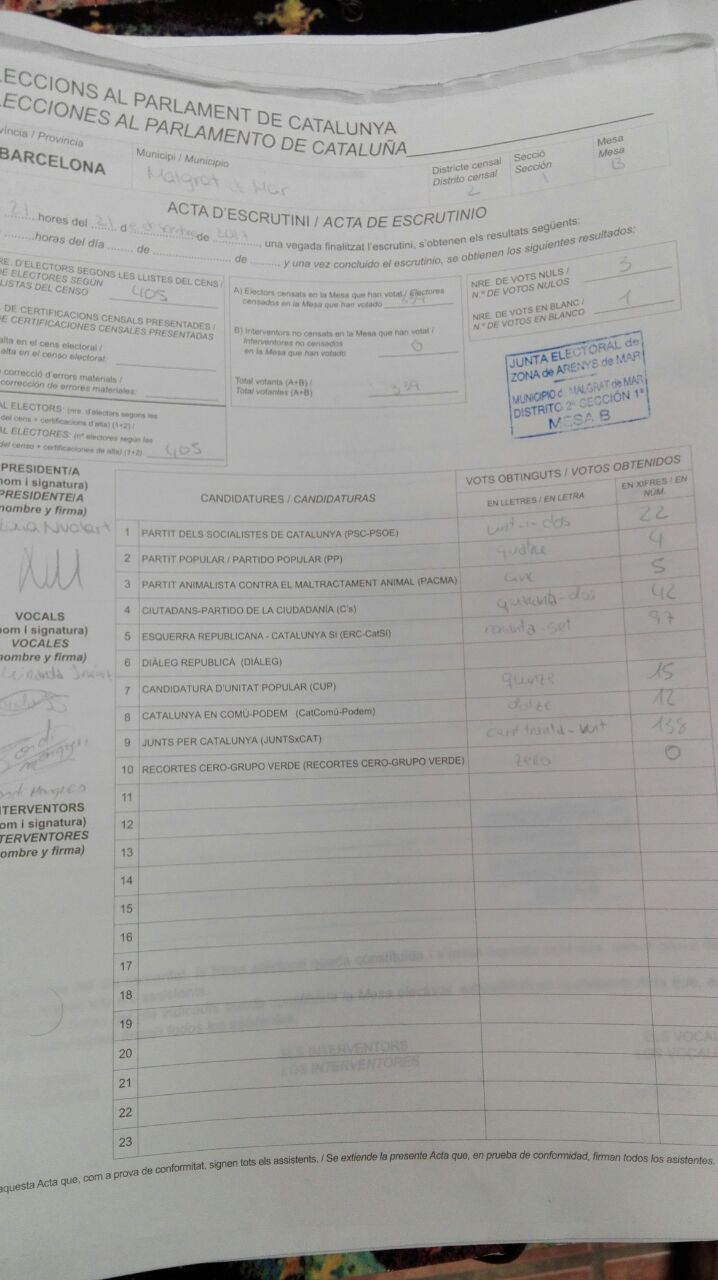 LECCIONS AL PARLAMENT DE CATALUNYA
LECCIONES AL PARLAMENTO DE CATALUÑA
víncia / Provincia
BARCELONA
Municipi / Municipio
Malgrat de Mar
Districte censal
Distrito censal
2
Secció
Sección
1
Mesa
Mesa
B
ACTA D'ESCRUTINI / ACTA DE ESCRUTINIO
21 hores del 21 de desembre de 2017, una vegada finalitzat l'escrutini, s'obtenen els resultats següents:
horas del día de de y una vez concluido el escrutinio, se obtienen los siguientes resultados:
RE. D'ELECTORS SEGONS LES LLISTES DEL CENS /
DE ELECTORES SEGÚN
LISTAS DEL CENSO 405
. DE CERTIFICACIONS CENSALS PRESENTADES /
DE CERTIFICACIONES CENSALES PRESENTADAS
alta en el cens electoral /
alta en el censo electoral:
correcció d'errores materials /
corrección de errores materiales:
AL ELECTORS: (nre. d'electors segons les
del cens + certificacions d'alta) (1+2) /
AL ELECTORES: (nº electores según las
del censo + certificaciones de alta) (1+2) 405
A) Electors censats en la Mesa que han votat / Electores
censados en la Mesa que han votado
B) Interventors no censats en la Mesa que han votat /
Interventores no censados
en la Mesa que han votado 0
Total votants (A+B) /
Total votantes (A+B) 339
NRE. DE VOTS NULS /
N.º DE VOTOS NULOS 3
NRE. DE VOTS EN BLANC /
N.º DE VOTOS EN BLANCO 1
JUNTA ELECTORAL de
ZONA de ARENYS de MAR
MUNICIPIO d. MALGRAT de MAR
DISTRITO 2º SECCIÓN 1ª
MESA B
PRESIDENT/A
nom i signatura)
PRESIDENTE/A
nombre y firma)
VOCALS
nom i signatura)
VOCALES
nombre y firma)
NTERVENTORS
om i signatura)
TERVENTORES
ombre y firma)
CANDIDATURES / CANDIDATURAS
VOTS OBTINGUTS / VOTOS OBTENIDOS
EN LLETRES / EN LETRA
EN XIFRES / EN NÚM.
1 PARTIT DELS SOCIALISTES DE CATALUNYA (PSC-PSOE) vint-i-dos 22
2 PARTIT POPULAR / PARTIDO POPULAR (PP) quatre 4
3 PARTIT ANIMALISTA CONTRA EL MALTRACTAMENT ANIMAL (PACMA) cinc 5
4 CIUTADANS-PARTIDO DE LA CIUDADANÍA (C's) quaranta-dos 42
5 ESQUERRA REPUBLICANA - CATALUNYA SI (ERC-CatSí) noranta-set 97
6 DIÀLEG REPUBLICÀ (DIÀLEG)
7 CANDIDATURA D'UNITAT POPULAR (CUP) quinze 15
8 CATALUNYA EN COMÚ-PODEM (CatComú-Podem) dotze 12
9 JUNTS PER CATALUNYA (JUNTSxCAT) 138
10 RECORTES CERO-GRUPO VERDE (RECORTES CERO-GRUPO VERDE) zero 0
11
12
13
14
15
16
17
18
19
20
21
22
23
ELS INTERVENTORS
LOS INTERVENTORES
ELS VOCAL
LOS VOCAL
aquesta Acta que, com a prova de conformitat, signen tots els assistents. / Se extiende la presente Acta que, en prueba de conformidad, firman todos los asistentes.